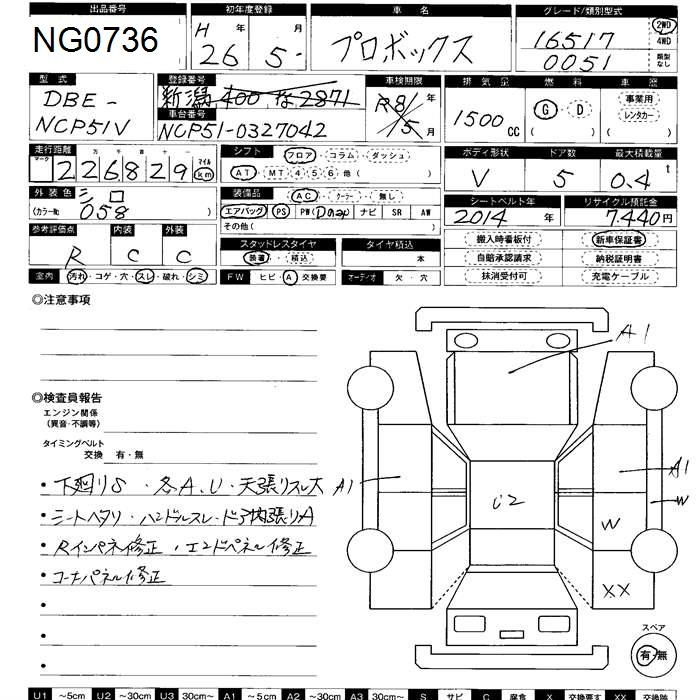 出品番号 初年度登録 車名 グレード/類別型式
NG0736 H 26 年 5 月 プロボックス 16517 0051 2WD 4WD 類型なし
型式 登録番号 車検期限 排気量 燃料 車歴
DBE-NCP51V 新潟 400 な 2871 R8 年 5 月 1500 CC G・D ( ) 事業用 レンタカー ( )
車台番号
NCP51-0327042
走行距離 シフト フロア・コラム・ダッシュ ボディ形状 ドア数 最大積載量
マーク 十万千百十一 226829 マイル km AT・MT(4 5 6 他( ) V 5 0.4 t
外装色 シロ 装備品 AC・クーラー・無し シートベルト年 リサイクル預託金
(カラーNo. 058 ) エアバッグ PS PW ナビ SR AW 2014 年 7.440円
その他( )
参考評価点 内装 外装 スタッドレスタイヤ タイヤ積込 搬入時看板付 新車保証書
R C C 装着・積込 本 自賠承認請求 納税証明書
室内 汚れ・コゲ・穴・スレ・破れ・シミ FW ヒビ・A・交換要 オーディオ 欠・穴 抹消受付可 充電ケーブル
◎注意事項
◎検査員報告
エンジン関係
(異音・不調等)
タイミングベルト
交換 有・無
・下廻りS・各A.U・天張リスレ大
・シートヘタリ・ハンドルスレ・ドア内張リA
・Rインパネ修正・エンドパネル修正
・コーナーパネル修正
A1
A1
A1
U2
W
W
XX
スペア
有・無
U1 ~5cm U2 ~30cm U3 30cm~ A1 ~5cm A2 ~30cm A3 30cm~ S サビ C 腐食 X 交換要す XX 交換跡